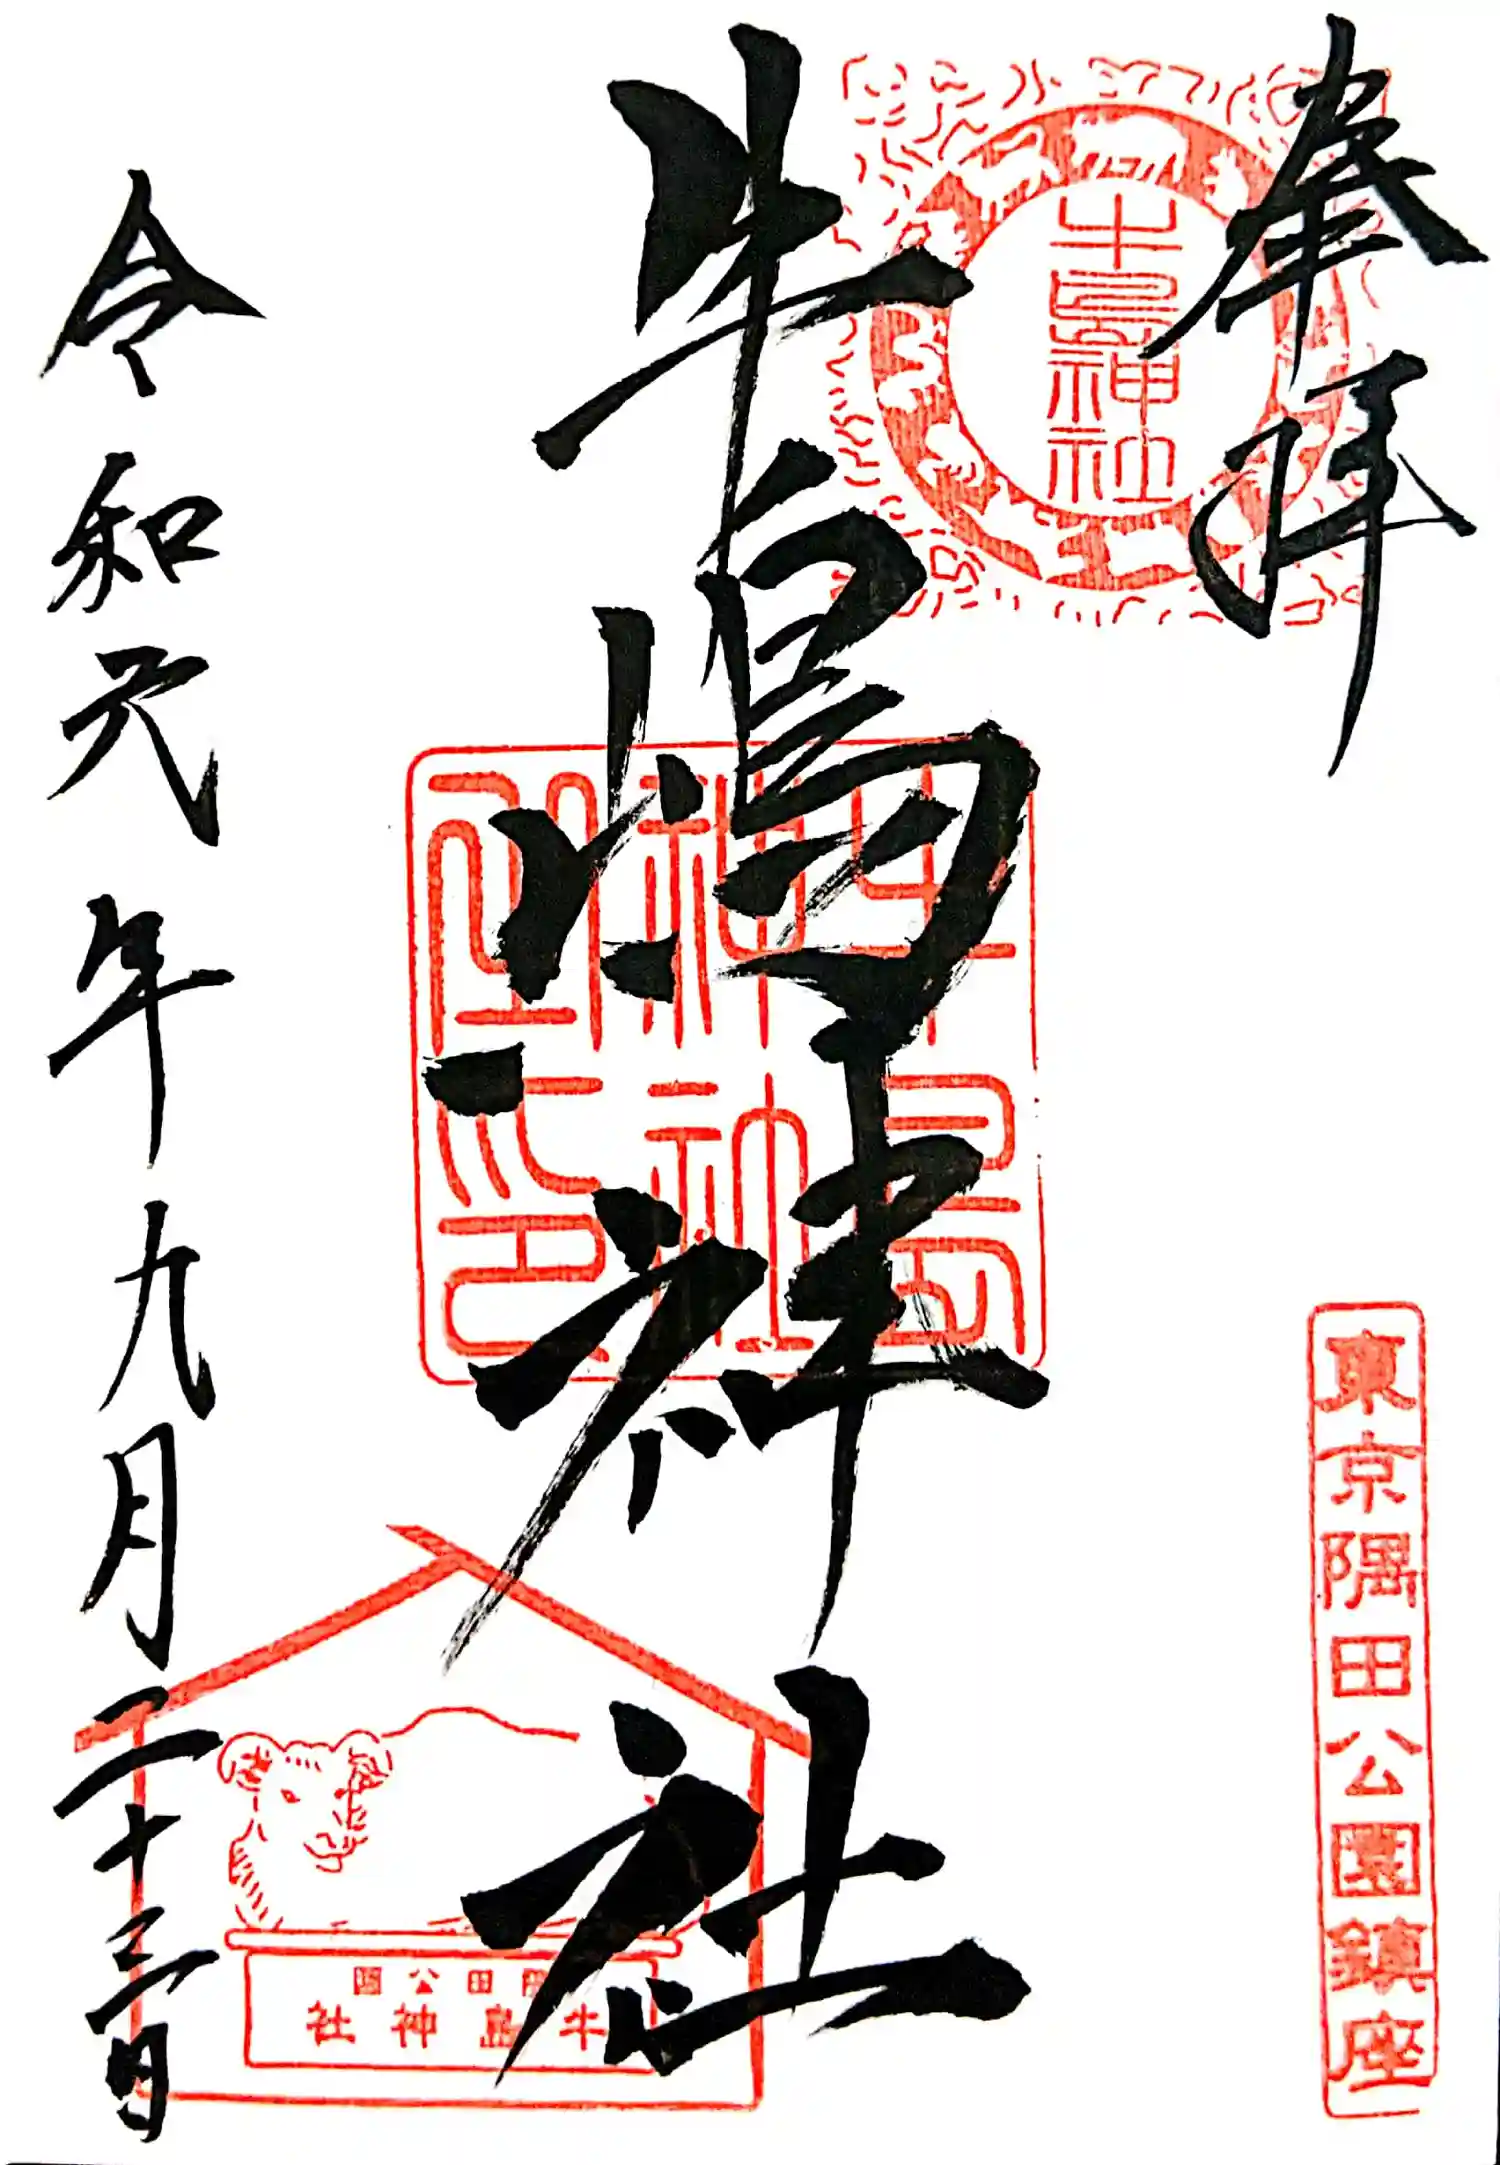 奉拝
牛島神社
東京隅田公園鎮座
牛嶋神社
牛島
神社
隅田公園
牛島神社
令和元年九月二十三日